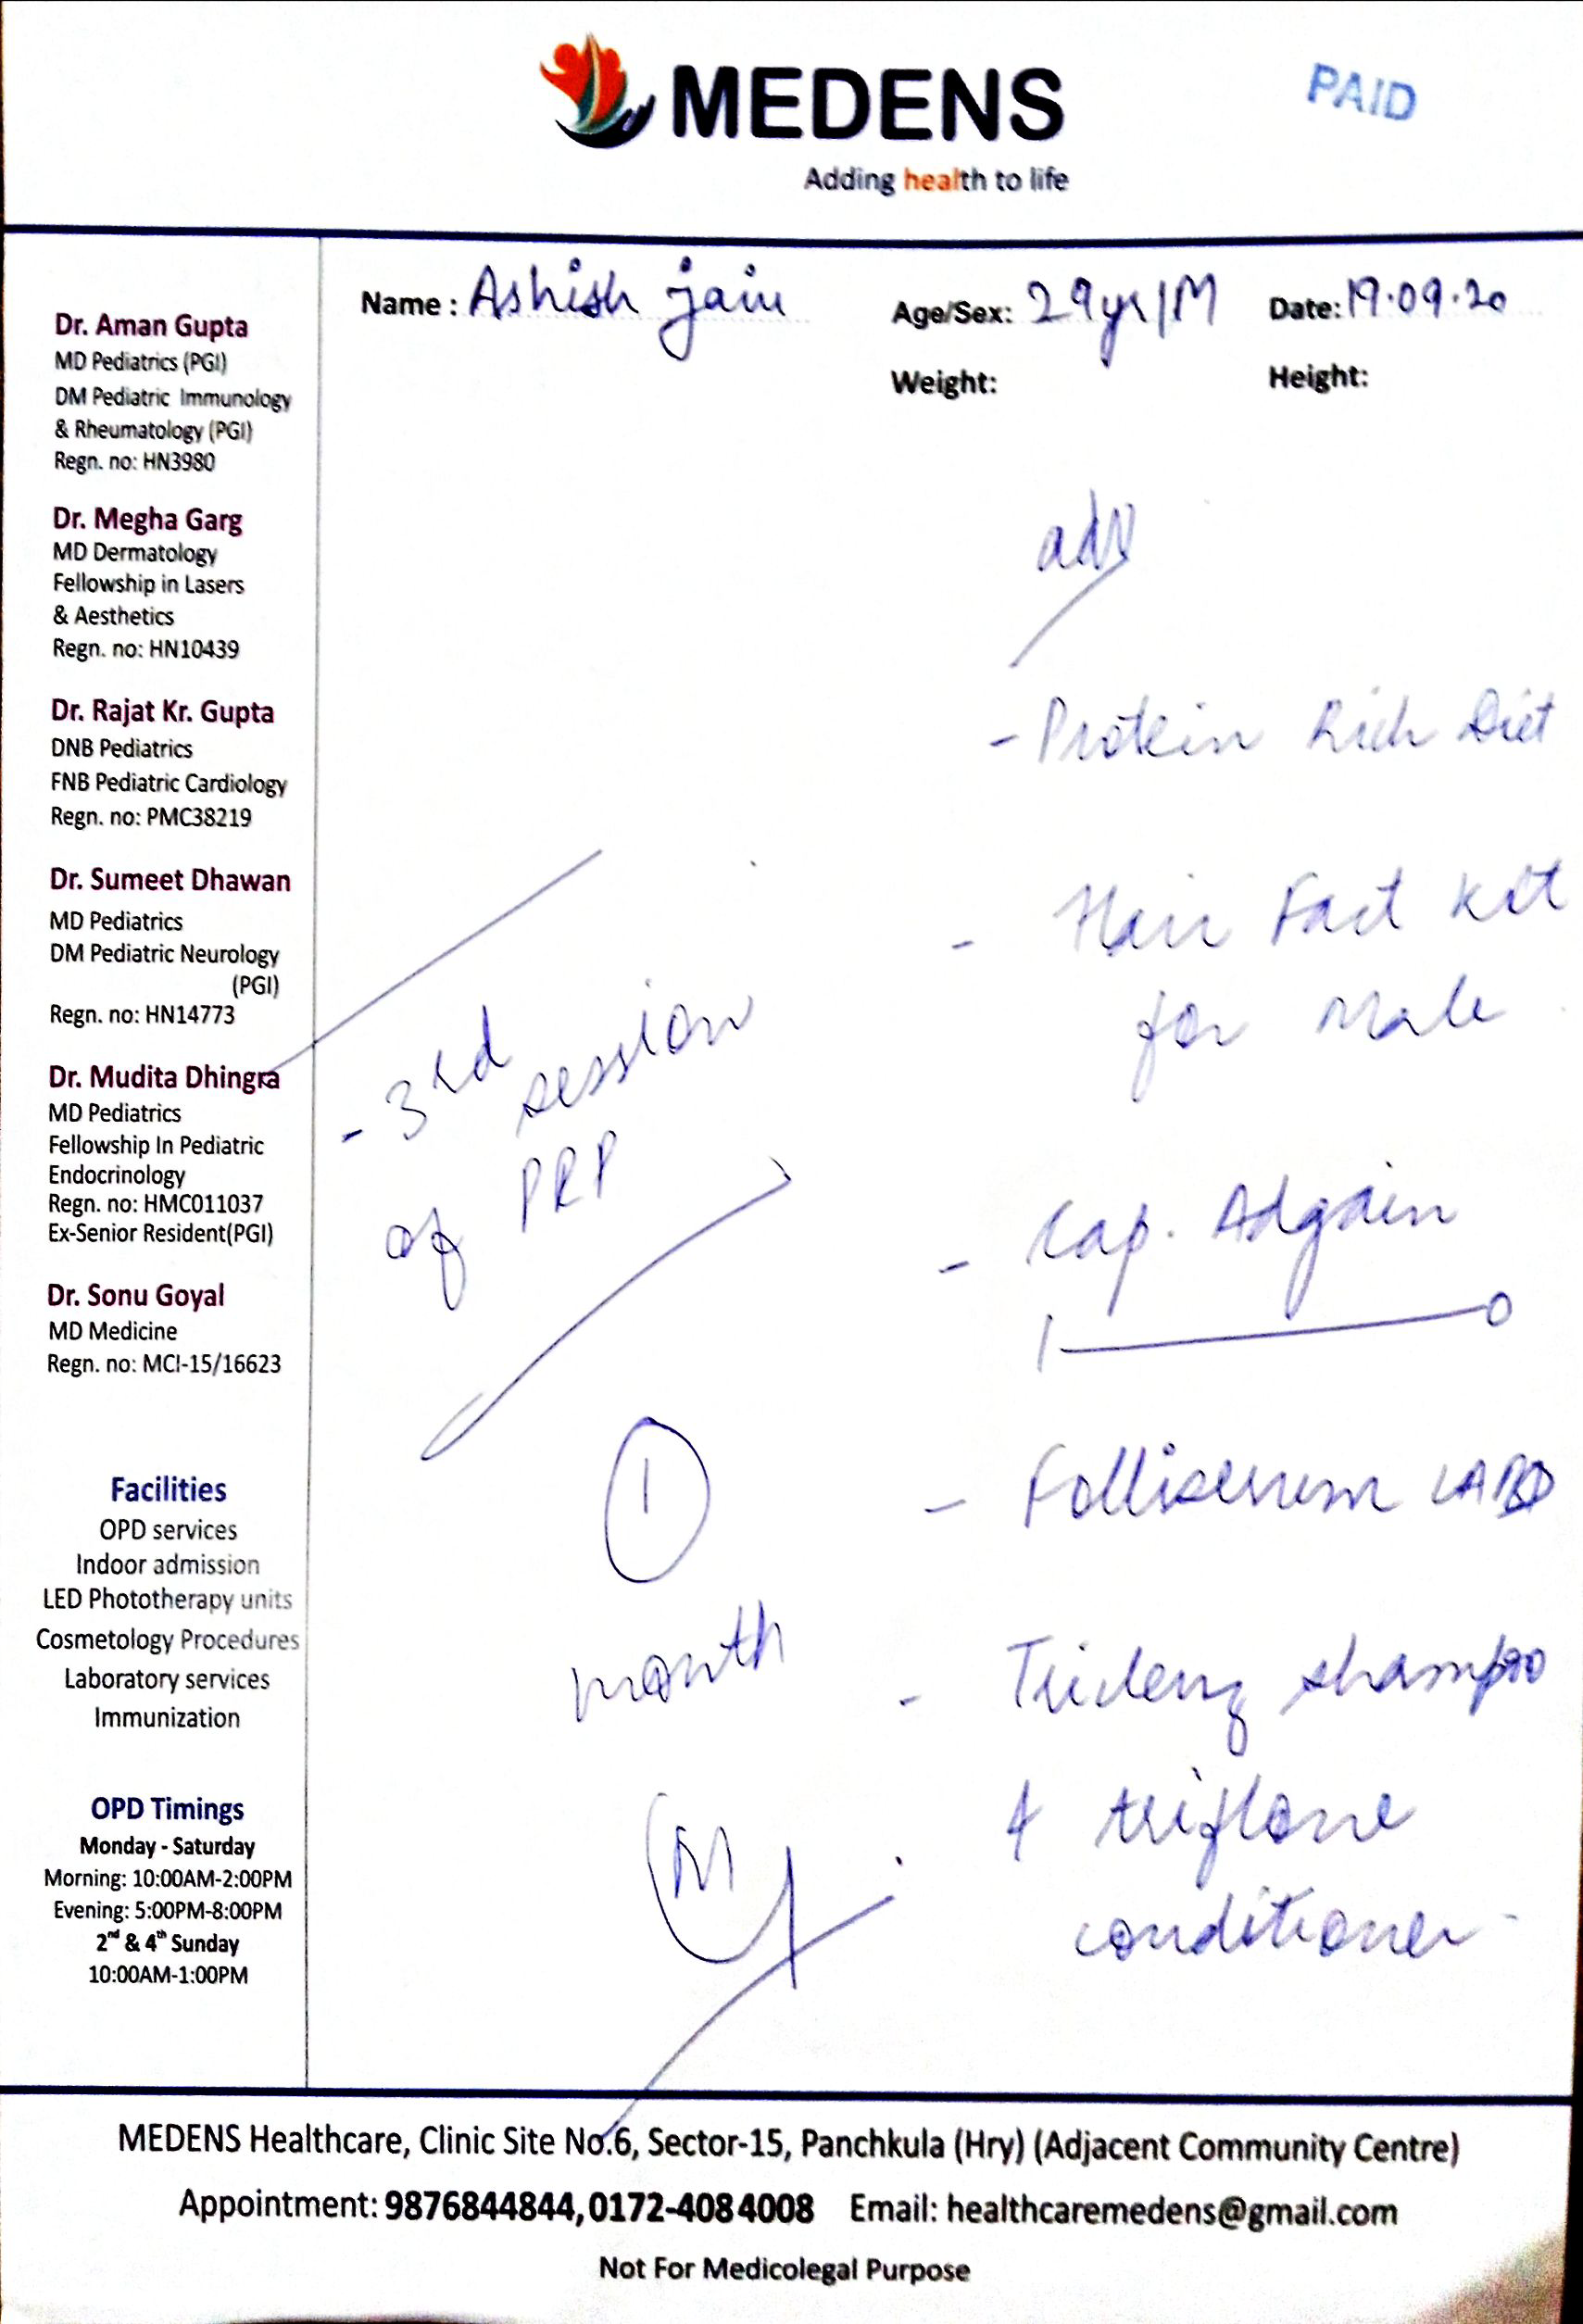 MEDENS
Adding health to life
PAID
Name : Ashish Jain
Age/Sex: 29yr/M
Date: 19.09.20
Weight:
Height:
Dr. Aman Gupta
MD Pediatrics (PGI)
DM Pediatric Immunology
& Rheumatology (PGI)
Regn. no: HN3980
Dr. Megha Garg
MD Dermatology
Fellowship in Lasers
& Aesthetics
Regn. no: HN10439
Dr. Rajat Kr. Gupta
DNB Pediatrics
FNB Pediatric Cardiology
Regn. no: PMC38219
Dr. Sumeet Dhawan
MD Pediatrics
DM Pediatric Neurology
(PGI)
Regn. no: HN14773
Dr. Mudita Dhingra
MD Pediatrics
Fellowship In Pediatric
Endocrinology
Regn. no: HMC011037
Ex-Senior Resident(PGI)
Dr. Sonu Goyal
MD Medicine
Regn. no: MCI-15/16623
Facilities
OPD services
Indoor admission
LED Phototherapy units
Cosmetology Procedures
Laboratory services
Immunization
OPD Timings
Monday - Saturday
Morning: 10:00AM-2:00PM
Evening: 5:00PM-8:00PM
2nd & 4th Sunday
10:00AM-1:00PM
- 3rd session
of PRP
1
month
adv
- Protein Rich Diet
- Hair Fact Kit
for Male
- Cap. Adgain
1 — 0
- Folliserum
- shampoo
conditioner
MEDENS Healthcare, Clinic Site No.6, Sector-15, Panchkula (Hry) (Adjacent Community Centre)
Appointment: 9876844844, 0172-4084008 Email: healthcaremedens@gmail.com
Not For Medicolegal Purpose